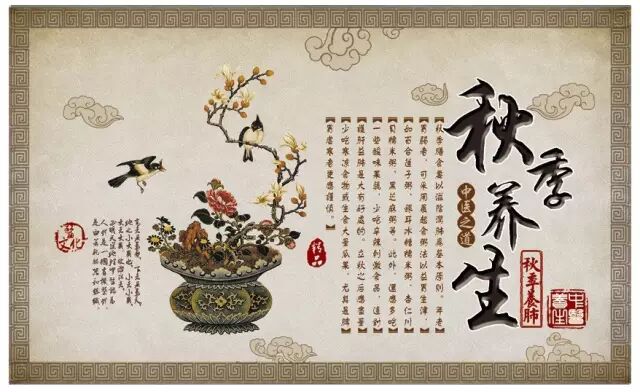 秋季养生
中医之道
秋季養肺
中醫養生
秋季膳食要以滋陰潤肺爲基本原则。年老
胃弱者,可采用晨起食粥法以益胃生津,
如百合蓮子粥、銀耳冰糖糯米粥、杏仁川
貝糯米粥、黑芝麻粥等。此外,還應多吃
一些酸味果蔬,少吃辛辣刺激食品,這對
護肝益肺是大有好處的。立秋之后應盡量
少吃寒凉食物或生食大量瓜果,尤其是脾
胃虚寒者更應謹慎。
精品
文化